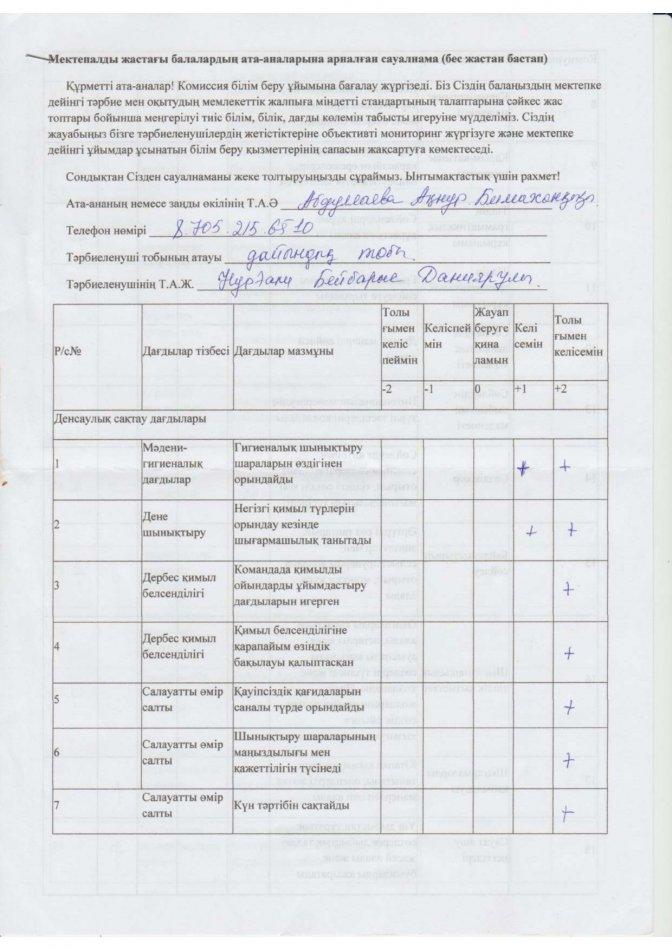 Мектепалды жастағы балалардың ата-аналарына арналған сауалнама (бес жастан бастап)
Құрметті ата-аналар! Комиссия білім беру ұйымына бағалау жүргізеді. Біз Сіздің балаңыздың мектепке
дейінгі тәрбие мен оқытудың мемлекеттік жалпыға міндетті стандартының талаптарына сәйкес жас
топтары бойынша меңгерілуі тиіс білім, білік, дағды көлемін табысты игеруіне мүдделіміз. Сіздің
жауабыңыз бізге тәрбиеленушілердің жетістіктеріне объективті мониторинг жүргізуге және мектепке
дейінгі ұйымдар ұсынатын білім беру қызметтерінің сапасын жақсартуға көмектеседі.
Сондықтан Сізден сауалнаманы жеке толтыруыңызды сұраймыз. Ынтымақтастық үшін рахмет!
Ата-ананың немесе заңды өкілінің Т.А.Ә Абдуллаева Ақнур
Телефон нөмірі 8.705.215 65 10
Тәрбиеленуші тобының атауы дайындық тобы
Тәрбиеленушінің Т.А.Ж. Нұрәли Бейбарыс Даниярұлы.
Р/с№ Дағдылар тізбесі Дағдылар мазмұны Толы ғымен келіс пеймін Келіспей мін Жауап беруге қина ламын Келі семін Толы ғымен келісемін
-2 -1 0 +1 +2
Денсаулық сақтау дағдылары
1 Мәдени-гигиеналық дағдылар Гигиеналық шынықтыру шараларын өздігінен орындайды + +
2 Дене шынықтыру Негізгі қимыл түрлерін орындау кезінде шығармашылық танытады + +
3 Дербес қимыл белсенділігі Командада қимылды ойындарды ұйымдастыру дағдыларын игерген +
4 Дербес қимыл белсенділігі Қимыл белсенділігіне қарапайым өзіндік бақылауы қалыптасқан +
5 Салауатты өмір салты Қауіпсіздік қағидаларын саналы түрде орындайды +
6 Салауатты өмір салты Шынықтыру шараларының маңыздылығы мен қажеттілігін түсінеді +
7 Салауатты өмір салты Күн тәртібін сақтайды +